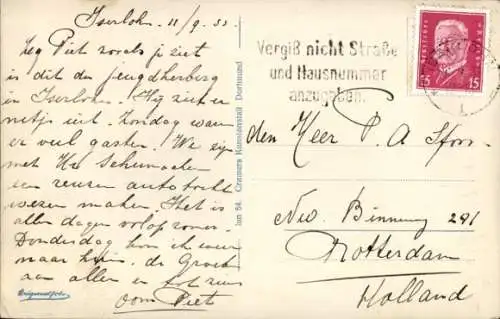 Iserlohn 11/9. 33.
Zeg Piet zooals je ziet
is dit de jeugdherberg
in Iserlohn. Hij ziet er
netjes uit. Zondag waren
er veel gasten! We zijn
met
een reuzen autotocht
wezen maken. Het is
alle dagen volop zomer.
Donderdag kom ik weer
naar huis. de Groeten
aan allen en tot ziens
oom Piet
Originalfoto
Jan 54. Cramers Kunstanstalt Dortmund
Vergiß nicht Straße
und Hausnummer
anzugeben.
15 15
den Heer P. A
Nw. Binnenweg 291
Rotterdam
Holland